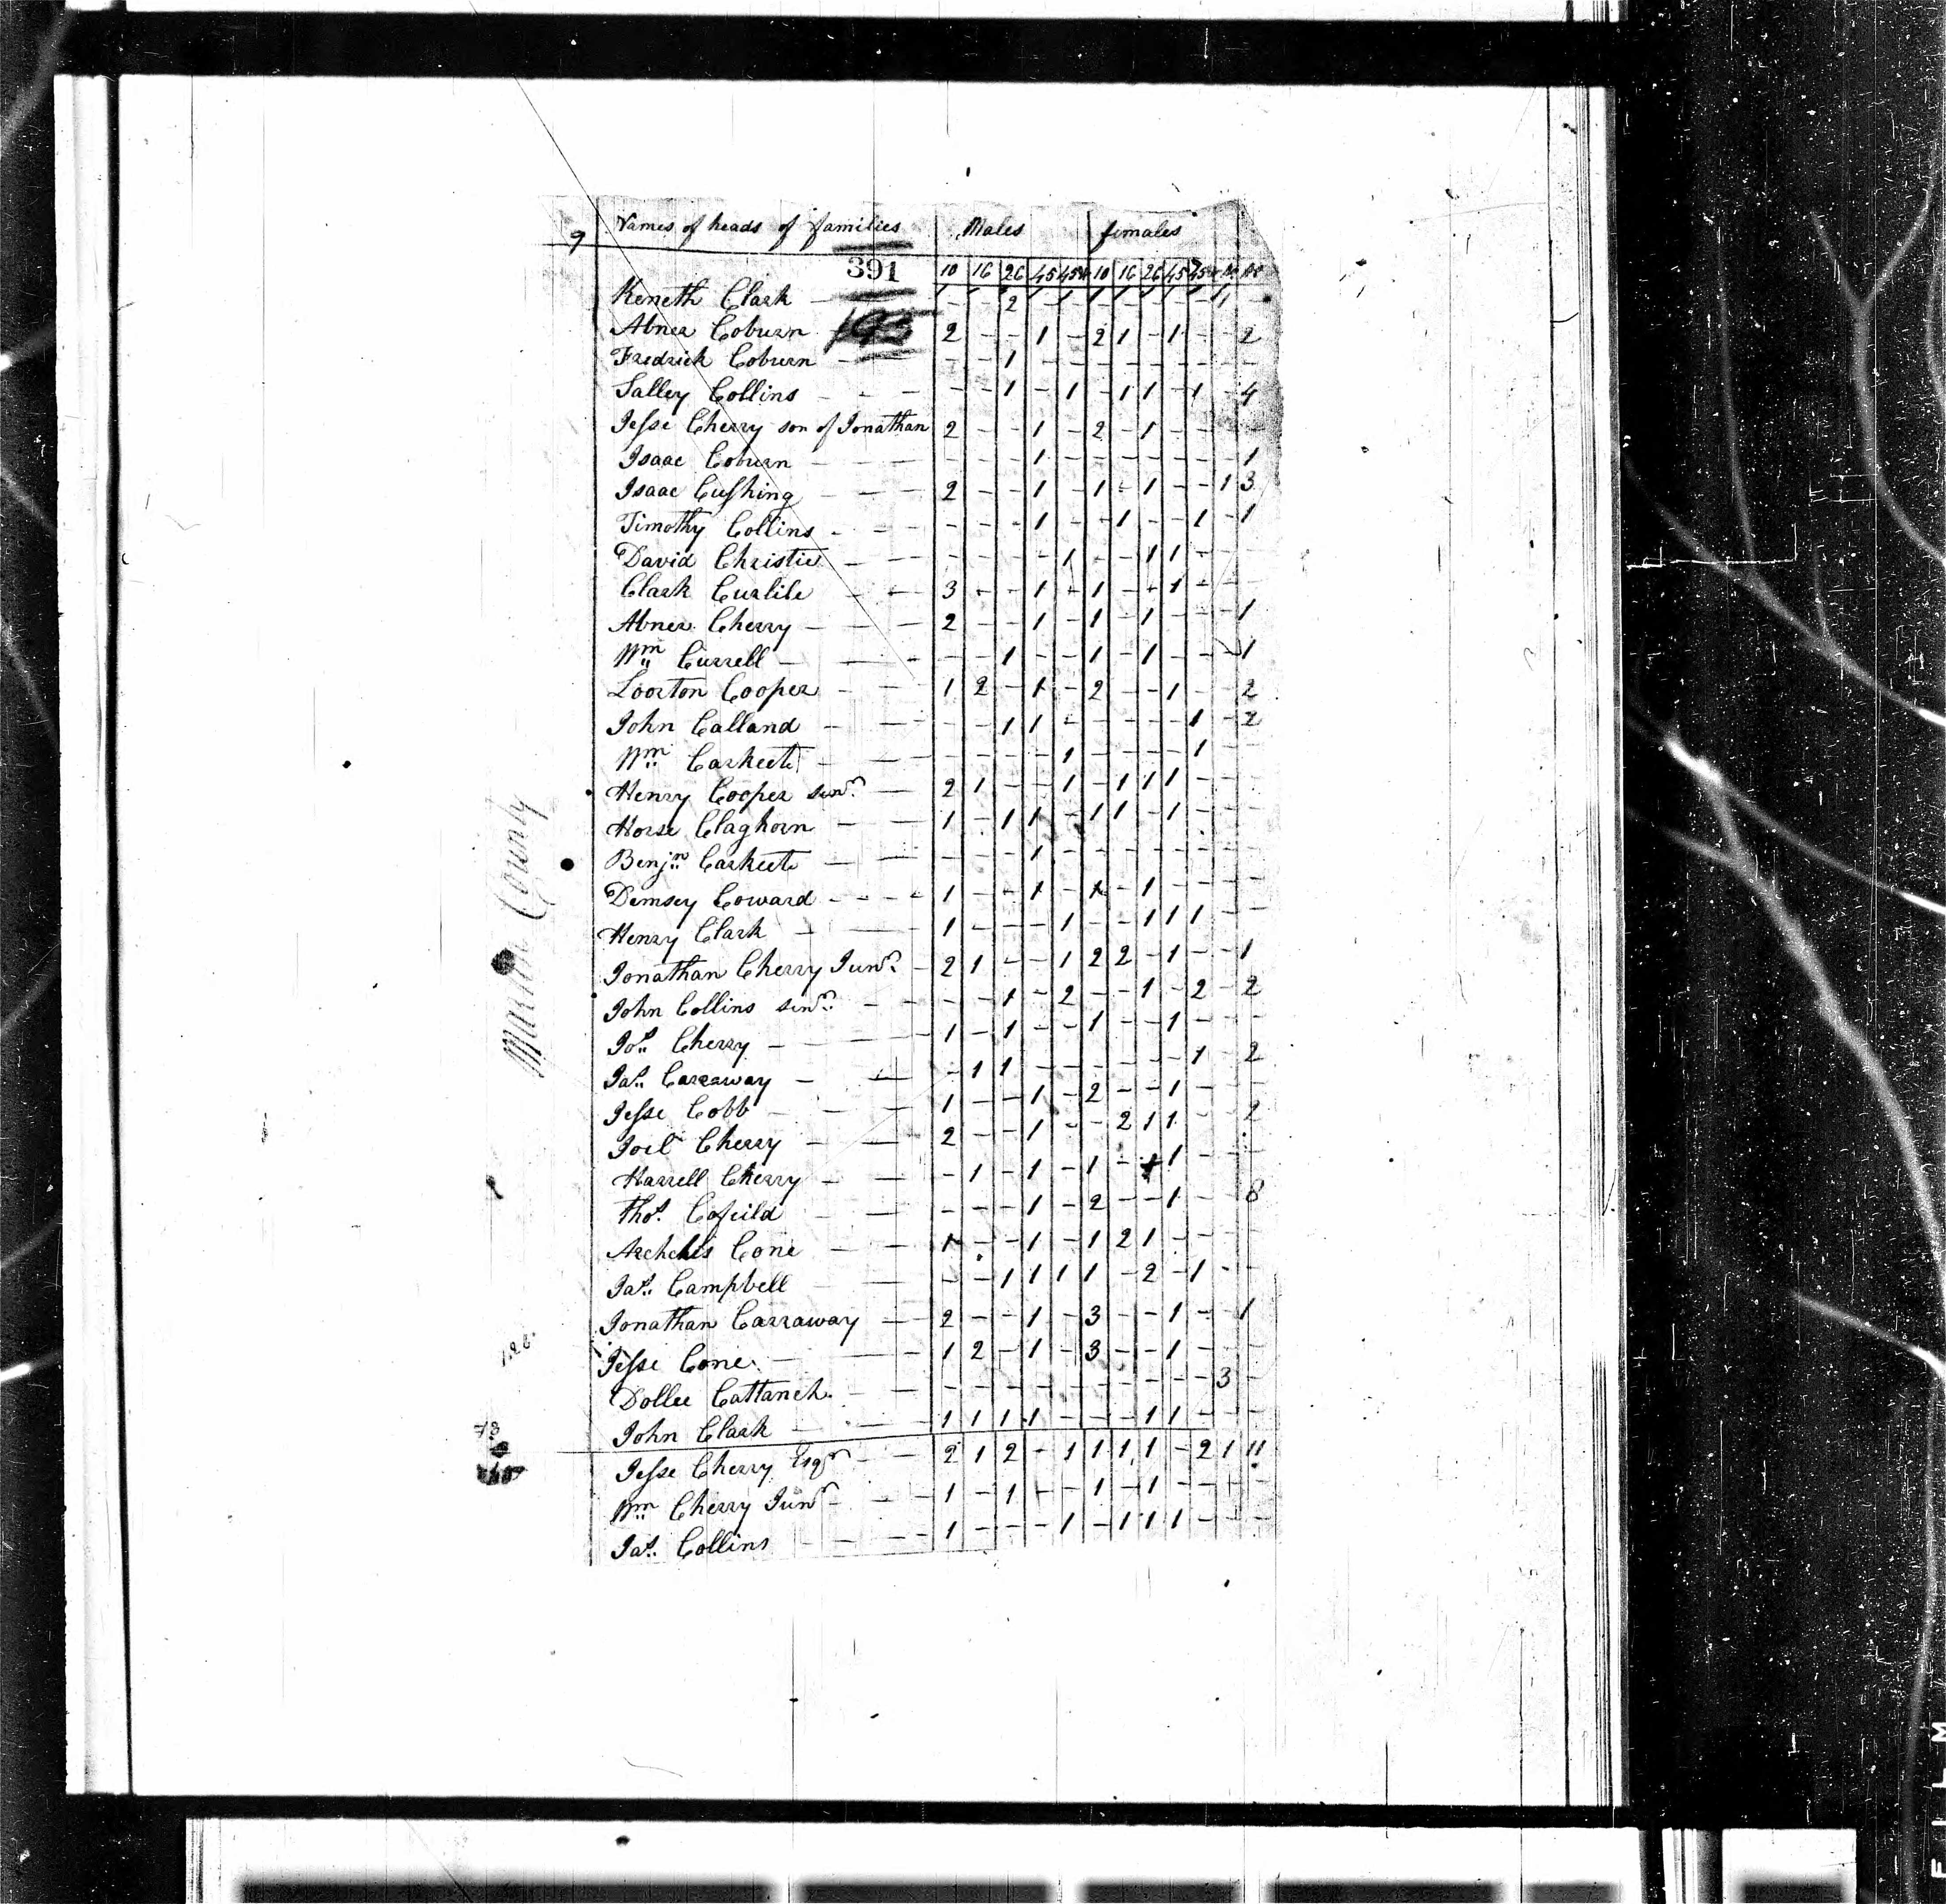 9 Names of heads of families Males females
391 10 16 26 45 45 10 16 26 45 45
Keneth Clark — - - 2 - 1 - - - - - 1 -
195
Abner Coburn 2 - - 1 - 2 1 - 1 - - 2
Fredrick Coburn — - - 1 - - - - - - - - -
Salley Collins - - - - - 1 - 1 - 1 1 - 1 - 4
Jesse Cherry son of Jonathan 2 - - 1 - 2 - 1 - - - -
Isaac Coburn - - - - - - 1 - - - - - - - 1
Isaac Cushing - - - 2 - - 1 - 1 - 1 - - 1 3
Timothy Collins - - - - - - 1 - - 1 - - 1 - 1
David Christie - - - - - - 1 - - 1 1 - - -
Clark Curlile - - 3 - - 1 - 1 - - 1 - - -
Abner Cherry - - - 2 - - 1 - 1 - 1 - - - 1
Wm Currell - - - - - 1 - - 1 - 1 - - - 1
Loorton Cooper - - 1 2 - 1 - 2 - - 1 - - 2
John Calland - - - - 1 1 - - - - - 1 - 2
Wm Carkeete - - - - - - 1 - - - - 1 - -
Henry Cooper senr. - 2 1 - - 1 - 1 1 1 - - -
Horse Claghorn - - 1 - 1 1 - 1 1 - 1 - - -
Benjn Carkeete - - - - - 1 - - - - - - - -
Demsey Coward - - - - 1 - - 1 - 1 - 1 - - - -
Henry Clark - - 1 - - - 1 - - 1 1 1 - -
Jonathan Cherry Junr. - 2 1 - - 1 2 2 - 1 - - 1
John Collins senr. - - - - 1 - 2 - - 1 - 2 - 2
Jos. Cherry - - - 1 - 1 - - 1 - - 1 - - -
Jas. Carraway - - - 1 1 - - - - - - 1 - 2
Jesse Cobb - - - 1 - - 1 - 2 - - 1 - - -
Joel Cherry - - 2 - - 1 - - 2 1 1 - - 2
Harrell Cherry - - - 1 - 1 - 1 - 1 1 - - -
Thos. Cofeild - - - - - 1 - 2 - - 1 - - 8
Archelis Cone - - 1 - - 1 - 1 2 1 - - - -
Jas. Campbell - - - - 1 1 1 1 - 2 - 1 - -
Jonathan Carraway - - 2 - - 1 - 3 - - 1 - - 1
Jesse Cone - - - 1 2 - 1 - 3 - - 1 - - -
Dollee Cattanch - - - - - - - - - - - - 3 -
John Clark - - - 1 1 1 1 - - - 1 1 - - -
Jesse Cherry Esqr - - 2 1 2 - 1 1 1 1 - 2 1 11
Wm Cherry Junr - - - 1 - 1 - - 1 - 1 - - - -
Jas. Collins - - - 1 - - - 1 - 1 1 1 - - -
Martin County
128
73